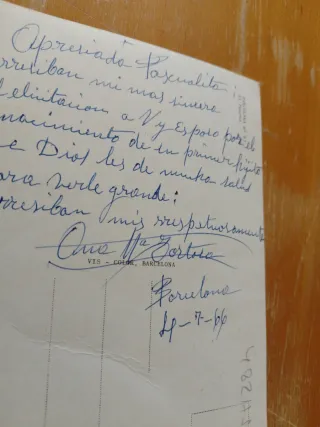 Apresiada Pascualita:
rresiban mi mas sinsera
felisitacion a V y Esposo por el
nacimiento de su primer
a Dios les de mucha salud
para verle grande:
rresiban mis rrespetuosamente
Ana Mª Tortosa
VIB - COLOR, BARCELONA
Barcelona
4-7-66